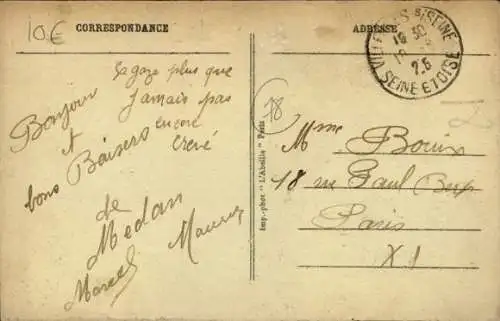 10€
CORRESPONDANCE
ADRESSE
Sa gaze plus que
Jamais pas
encore
crevé
Bonjour
et
bons Baisers
de
Medan
Marcel Maurice
Imp.-phot "L'Abeille" Paris
78
VILLENNES S/SEINE
SEINE ET OISE
Mme Bouin
18 rue Paul Bert
Paris
XI